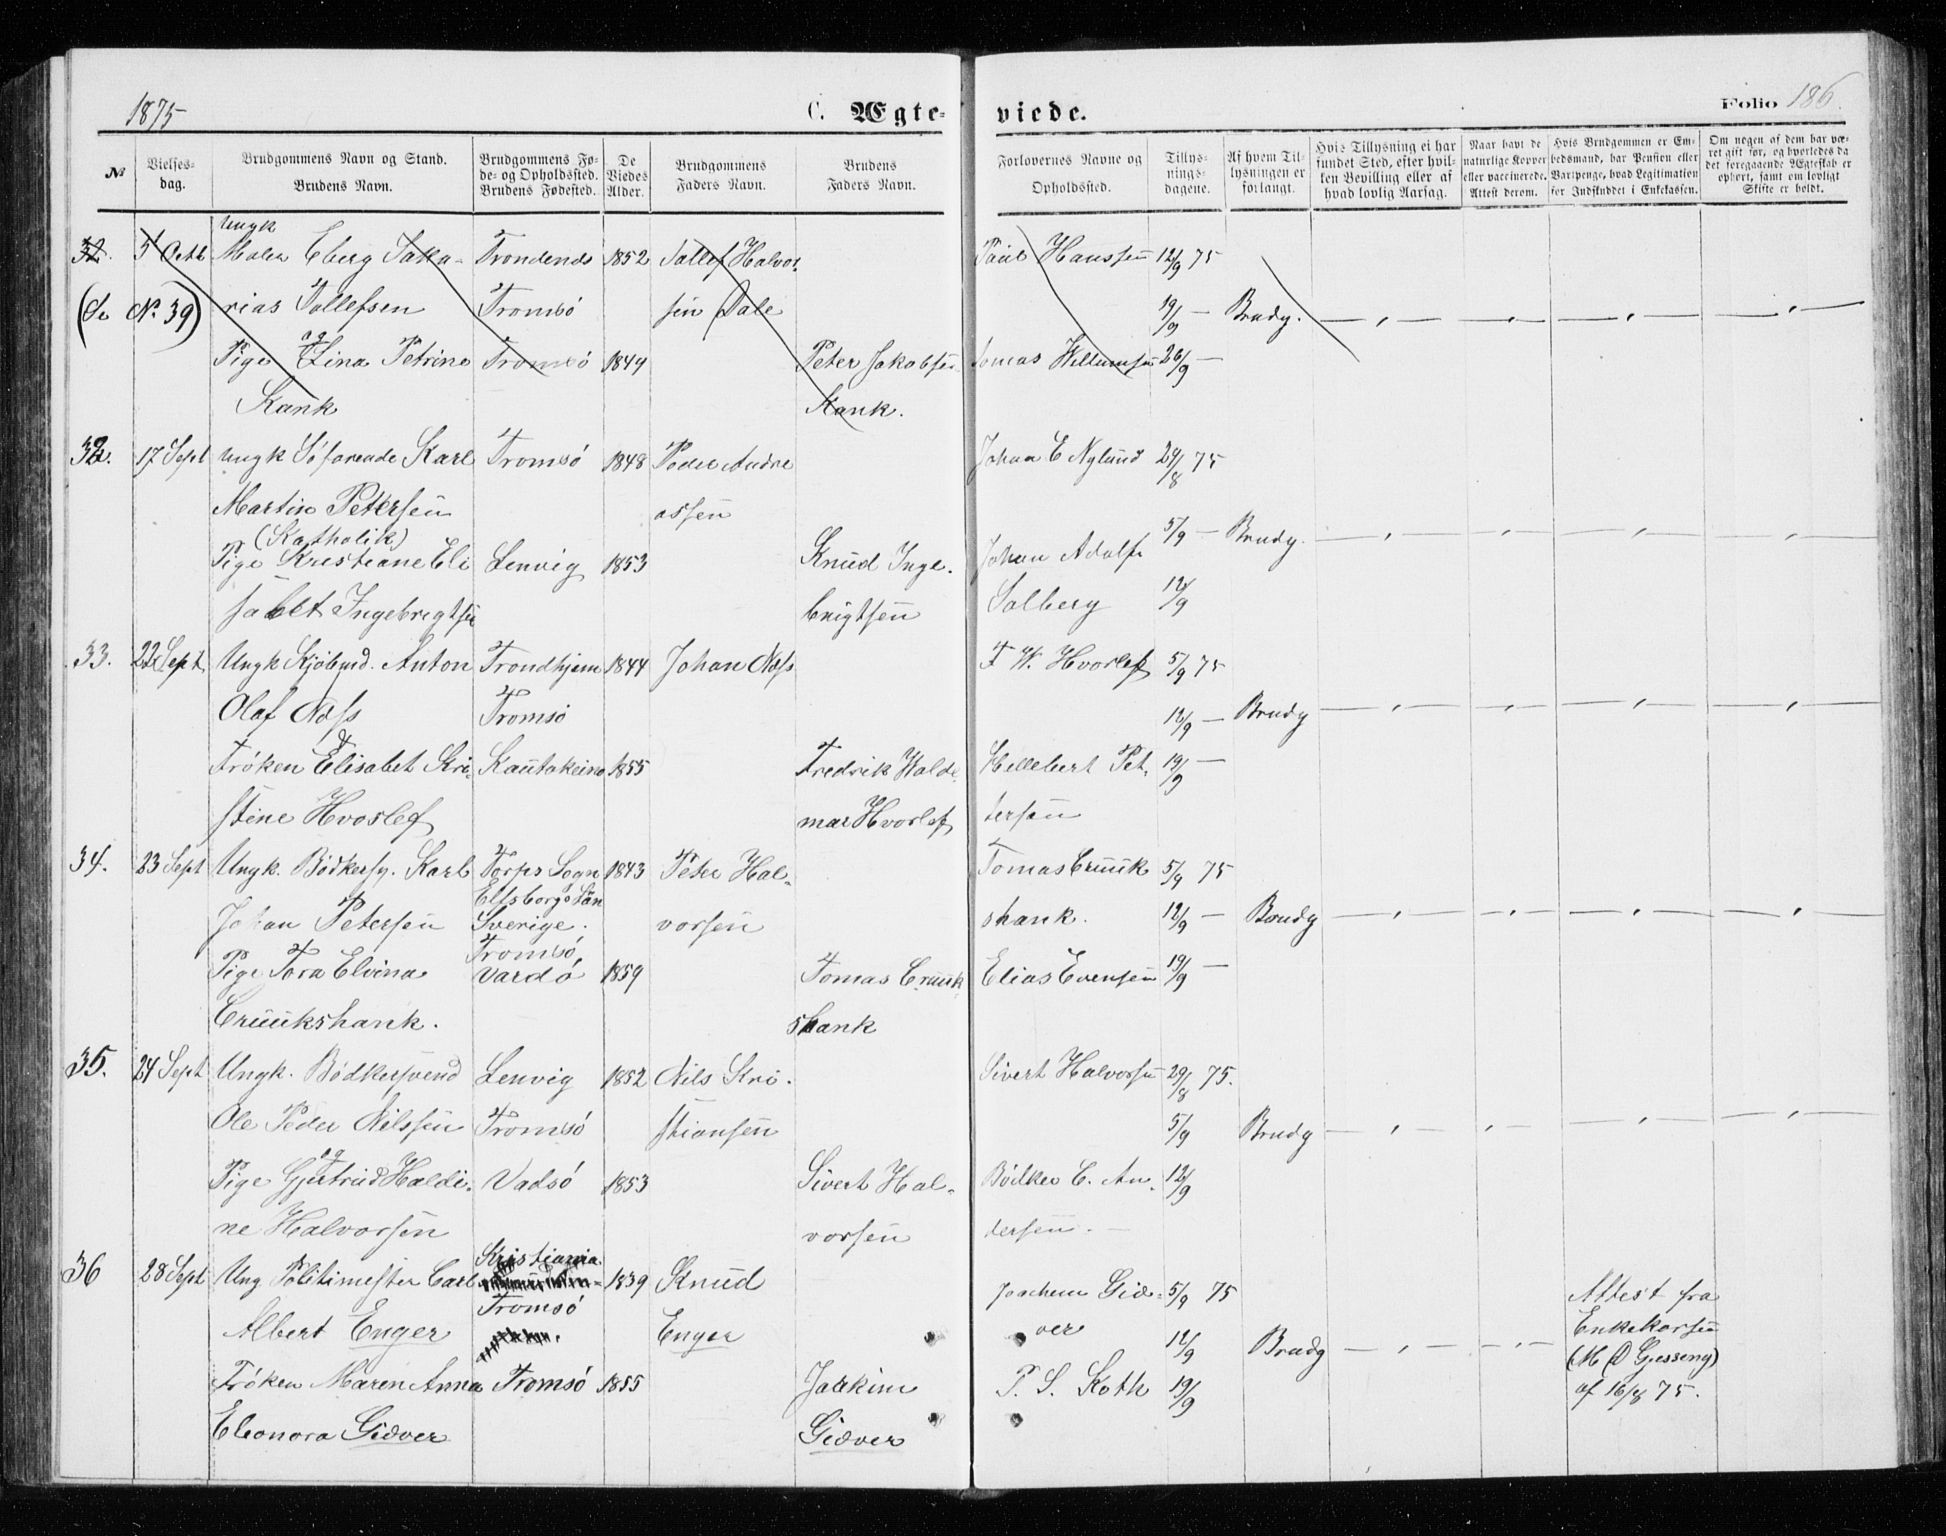 1875
C. Ægte-
viede.
Folio 186.
№
Vielses-
dag.
Brudgommens Navn og Stand.
Brudens Navn.
Brudgommens Fø-
de- og Opholdssted.
Brudens Fødested.
De
Viedes
Alder.
Brudgommens
Faders Navn.
Brudens
Faders Navn.
Forlovernes Navne og
Opholdssted.
Tillys-
nings-
dagene.
Af hvem Til-
lysningen er
forlangt.
Hvis Tillysning ei har
fundet Sted, efter hvil-
ken Bevilling eller af
hvad lovlig Aarsag.
Naar havt de
naturlige Kopper
eller vaccinerede.
Attest derom.
Hvis Brudgommen er Em-
bedsmand, har Pension eller
Vartpenge, hvad Legitimation
for Indskuddet i Enkekassen.
Om nogen af dem har væ-
ret gift før, og hvorledes da
det foregaaende Ægteskab er
ophørt, samt om lovligt
Skifte er holdt.
Ungk
32. 5 Octb Maler Eberg Saka- Trondenes 1852 Tollef Halvor Paul Hanssen 12/9 75
(Se No. 39) rias Tollefsen Tromsö sen Dale 19/9 — Brudg. — " — " — " — " —
og
Pige Lina Petrine Tromsö 1849 Peter Jakobsen Tomas Willumsen 26/9 —
Kank Kank.
32. 17 Sept Ungk Söfarende Karl Tromsö 1848 Peder Andre Johan E Nylund 29/8 75
Martin Petersen assen
(Katholik) 5/9 — Brudg. — " — " — " — " —
Pige Kristiane Eli Lenvig 1853 Knud Inge. Johan Adolf
sabet Ingebrigtsen brigtsen Solberg 12/9
33. 22 Sept Ungk Kjöbmd. Anton Trondhjem 1844 Johan Næss F W. Hvoslef 5/9 75
Olaf Næss Tromsö 12/9 — Brudg — " — " — " — " —
Fröken Elisabet Kri- Kautokeino 1855 Fredrik Walde Hellebert Pet. 19/9 —
stine Hvoslef mar Hvoslef tersen
34. 23 Sept Ungk. Bödkersv. Karl Torps Sogn 1843 Peter Hal- Tomas Cruuk 5/9 75
Elfsborgs Län
Johan Petersen Sverige. vorsen shank. 12/9 — Brudg — " — " — " — " —
Tromsö,
Pige Tora Elvina Vardö 1859 Tomas Cruuk Elias Evensen 19/9 —
Cruukshank. shank
35. 24 Sept Ungk. Bödkersvend Lenvig 1852 Nils Kri. Sivert Halvorsen 29/8 75.
Ole Peder Nilssen Tromsö stiansen 5/9 Brudg — " — " — " — " —
og
Pige Gjertrud Haldi. Vadsö 1853 Sivert Hal- Bödker C. An. 12/9
ne Halvorsen vorsen dersen. —
Kristiania
36 28 Sept Ung Politimester Carl 1839 Knud Jochem Giæ- 5/9 75 Attest fra
Tromsö
Albert Enger Enger ver 12/9 Brudg — " — " — Enkekassen
(M D Giessing)
Fröken Maren Anna Tromsö 1855 Joakim P. S. Koth 19/9 af 16/8 75.
Eleonora Giæver Giæver